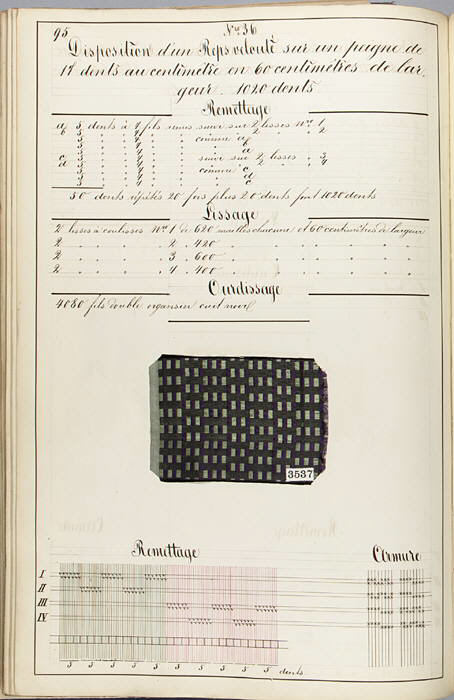 95
No. 36
Disposition d'un Reps velouté sur un peigne de
17 dents au centimètre en 60 centimètres de lar-
geur. 1020 dents
Remettage
a 5 dents à 4 fils remis suivi sur 2 lisses Nos. 1
b 5 " " 4 " " " " 2 " " 2
5 " " 4 " " comme a
5 " " 4 " " " b
5 " " 4 " " " a
c 5 " " 4 " " suivi sur 2 lisses " 3
d 5 " " 4 " " " " 2 " " 4
5 " " 4 " " comme c
5 " " 4 " " " d
5 " " 4 " " " c
50 dents répétés 20 fois plus 20 dents font 1020 dents
Lissage
2 lisses à coulisses Nos. 1 de 620 mailles chacune et 60 centimètres de largeur
2 " " " 2 " 420 " " " " "
2 " " " 3 " 600 " " " " "
2 " " " 4 " 400 " " " " "
Ourdissage
4080 fils double organsin cuit noir
3537
Remettage
Armure
I
II
III
IV
5 5 5 5 5 5 5 5 5 5 dents